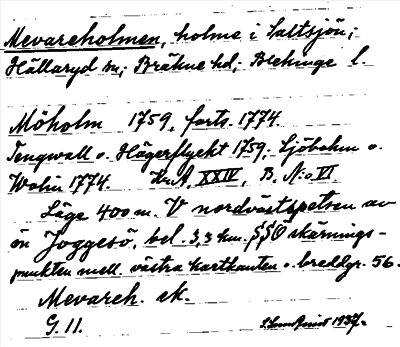 Mevareholmen, holme i Saltsjön;
Hällaryd sn; Bräkne hd; Blekinge l.
Möholm 1759, forts. 1774
Tengwall o. Hägerflycht 1759; Sjöbohm o.
Wolin 1774. Kr.A, XXIV, B. N:o VI
Läge 400 m. V nordvästspetsen av
ön Joggesö, bel. 3,3 km. SSO skärnings-
punkten mell. västra kartkanten o. breddgr. 56.
Mevareh. sk.
G. 11. 1937.